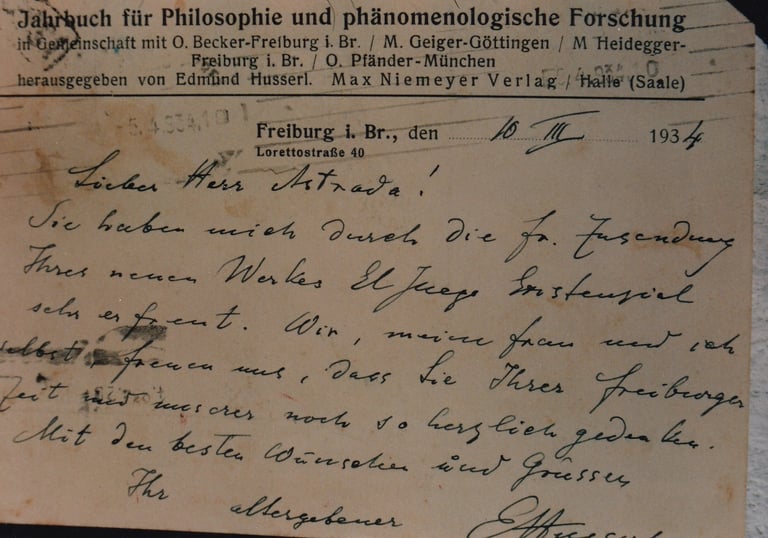 Jahrbuch für Philosophie und phänomenologische Forschung
in Gemeinschaft mit O. Becker-Freiburg i. Br. / M. Geiger-Göttingen / M Heidegger-
Freiburg i. Br. / O. Pfänder-München
herausgegeben von Edmund Husserl. Max Niemeyer Verlag / Halle (Saale)
Freiburg i. Br., den 10 III 1934
Lorettostraße 40
Lieber Herr Astrada!
Sie haben mich durch die fr. Zusendung
Ihres neuen Werkes El Juego Existenziel
sehr erfreut. Wir, meine Frau und ich
selbst, freuen uns, dass Sie Ihrer Freiburger
Zeit und unserer noch so herzlich gedenken.
Mit den besten Wünschen und Grüssen
Ihr altergebener EHusserl